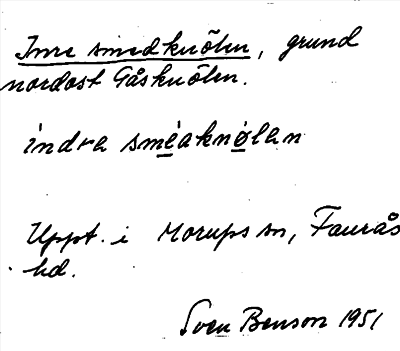 Inre smedknölen, grund
nordost Gåsknölen.
indra smeaknølan
Uppt. i Morups sn, Faurås
hd.
Sven Benson 1951